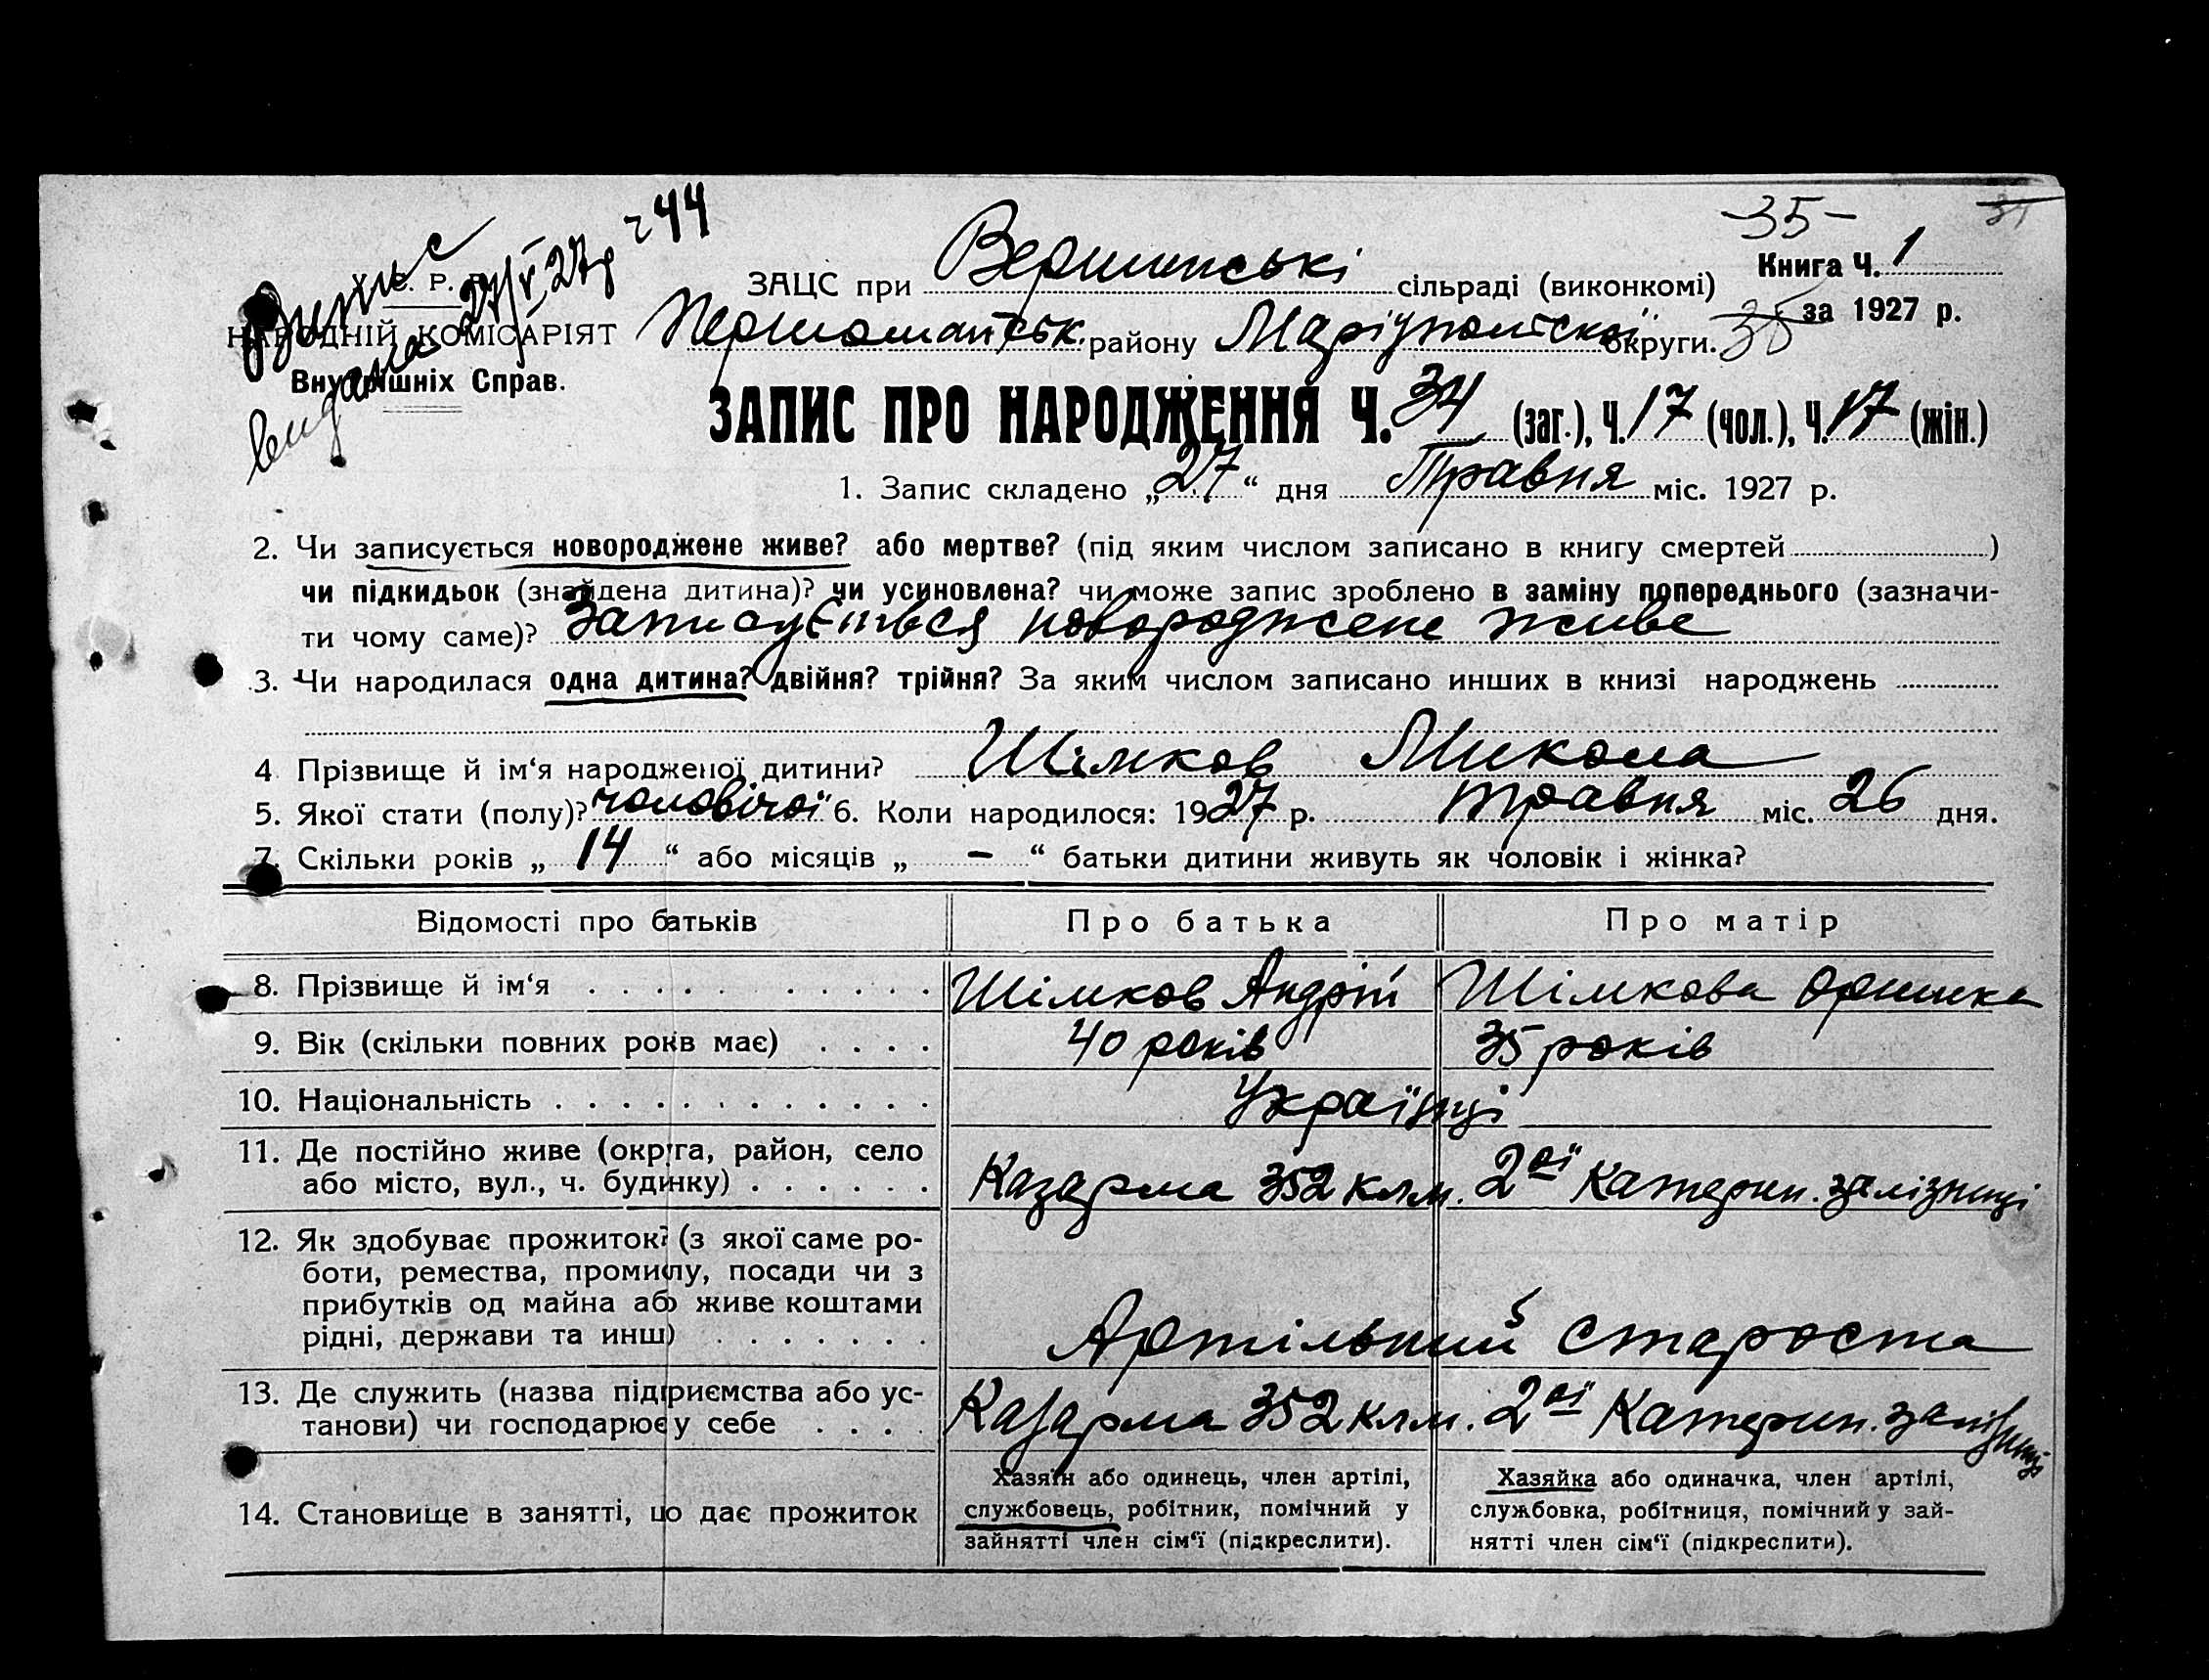 -35-
34
Випис
видана 27/V 27 р ч 44
У. С. Р. Р.
НАРОДНІЙ КОМІСАРІЯТ
Внутрішніх Справ.
ЗАЦС при Вершинські сільраді (виконкомі)
Книга Ч. 1
Першомайськ. району Маріупольської округи.
35 за 1927 р.
ЗАПИС ПРО НАРОДЖЕННЯ Ч. 34 (заг.), Ч. 17 (чол.), Ч. 17 (жін.)
1. Запис складено „27“ дня Травня міс. 1927 р.
2. Чи записується новороджене живе? або мертве? (під яким числом записано в книгу смертей )
чи підкидьок (знайдена дитина)? чи усиновлена? чи може запис зроблено в заміну попереднього (зазначи-
ти чому саме)? Записується новороджене живе
3. Чи народилася одна дитина? двійня? трійня? За яким числом записано инших в книзі народжень
4. Прізвище й ім‘я народженої дитини? Шімков Микола
5. Якої стати (полу)? чоловічої 6. Коли народилося: 1927 р. травня міс. 26 дня.
7. Скільки років „ 14 “ або місяців „ – “ батьки дитини живуть як чоловік і жінка?
Відомості про батьків Про батька Про матір
8. Прізвище й ім‘я Шімков Андрій Шімкова Оришка
9. Вік (скільки повних років має) 40 років 35 років
10. Національність Українці
11. Де постійно живе (округа, район, село
або місто, вул., ч. будинку) Казарма 352 клм. 2ої Катерин. залізниці
12. Як здобуває прожиток? (з якої саме ро-
боти, ремества, промислу, посади чи з
прибутків од майна або живе коштами
рідні, держави та инш) Артільний староста
13. Де служить (назва підприємства або ус-
танови) чи господарює у себе Казарма 352 клм. 2ої Катерин. залізниці
14. Становище в занятті, що дає прожиток
Хазяїн або одинець, член артілі,
службовець, робітник, помічний у
зайнятті член сім‘ї (підкреслити).
Хазяйка або одиначка, член артілі,
службовка, робітниця, помічний у зай-
нятті член сім‘ї (підкреслити).